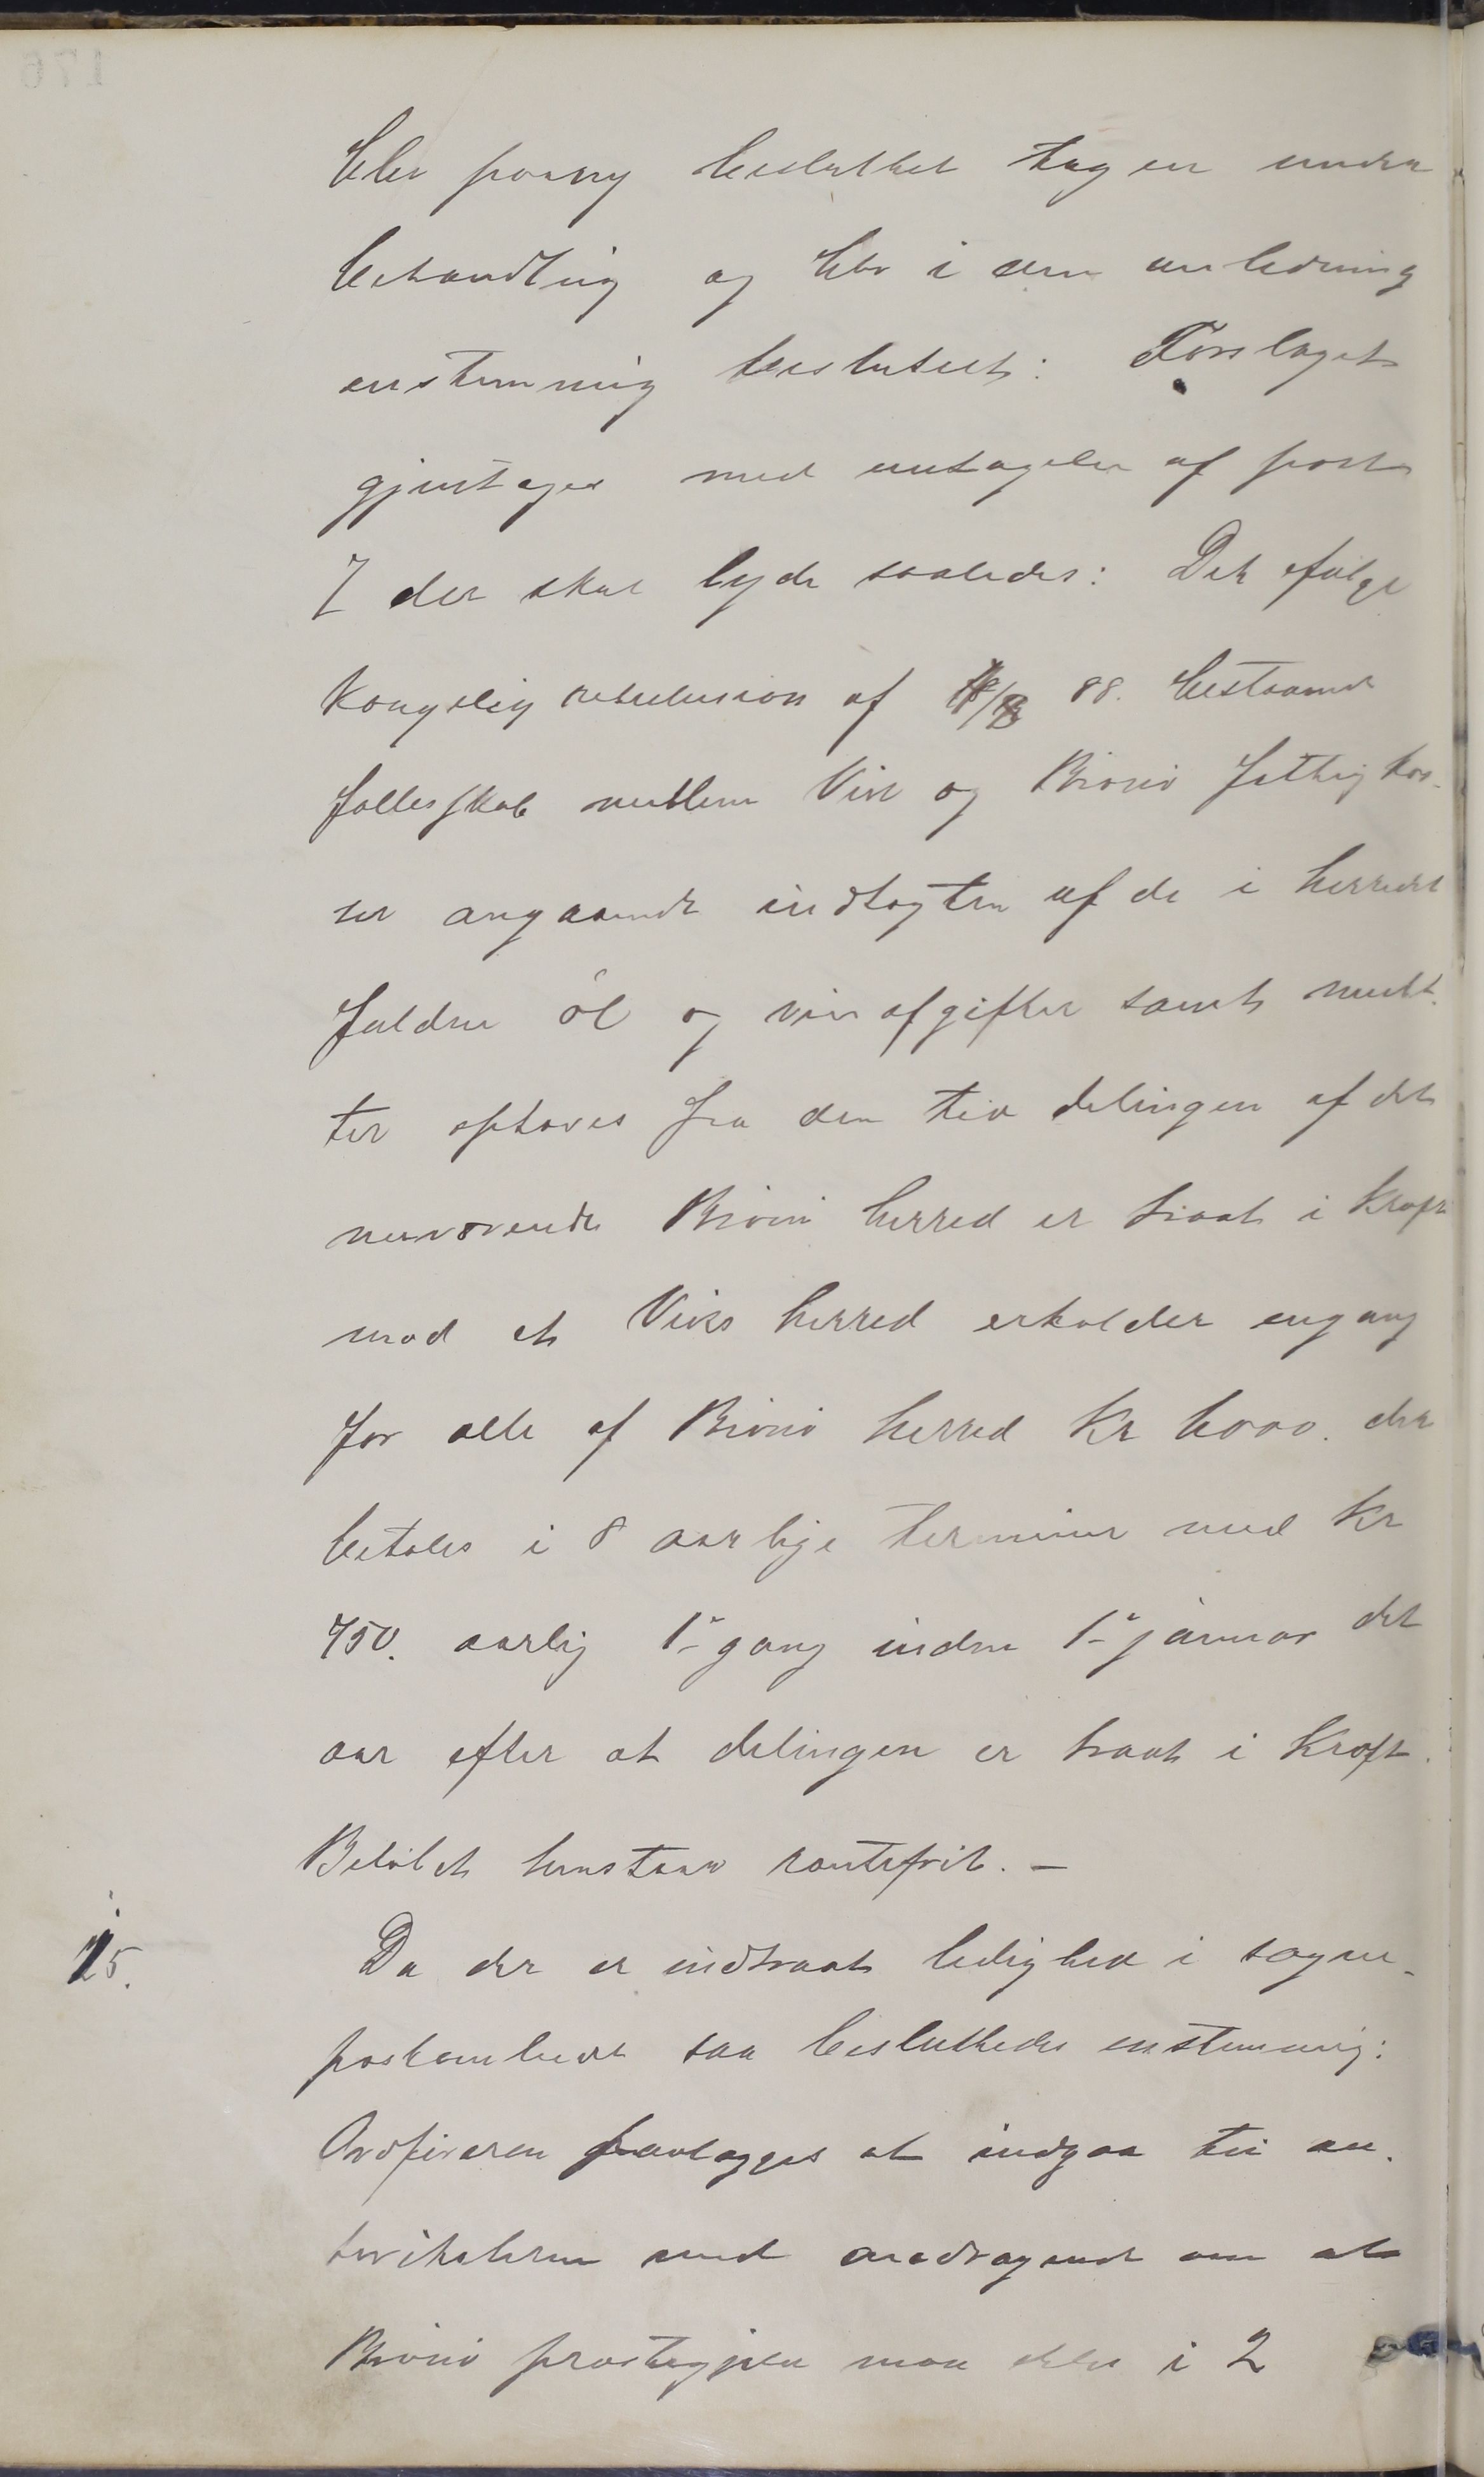 blev paany besluttet tagen under
behandling og blev i den anledning
enstemmig besluttet: Forslaget
gjentages med undtagelse af post
7 der skal lyde saaledes: Det ifølge
Kongelig resolusion af 88. bestaaende
fællesskab mellem Vik og Brönö fattigkas-
ser angaaende indtagten af de i herredet
faldne öl og vinafgifter samt mulk-
ter ophæves fra den tid delingen af det
nuværende Brönö herred er traat i kraft
mod at Viks herred erholder engang
for alle af Brönö herred Kr 6000. der
betales i 8 aarlige terminer med Kr
750. aarlig 1ste gang inden 1ste januar det
aar efter at delingen er traat i kraft.
Belöbet henstaar rentefrit. —
15.
Da der er indtraat ledighed i sogne-
prestembedet saa besluttedes enstemmig:
Ordföreren paalægges at indgaa til au-
toriteterne med andragende om at
Brönö prestegjeld maa deles i 2
176